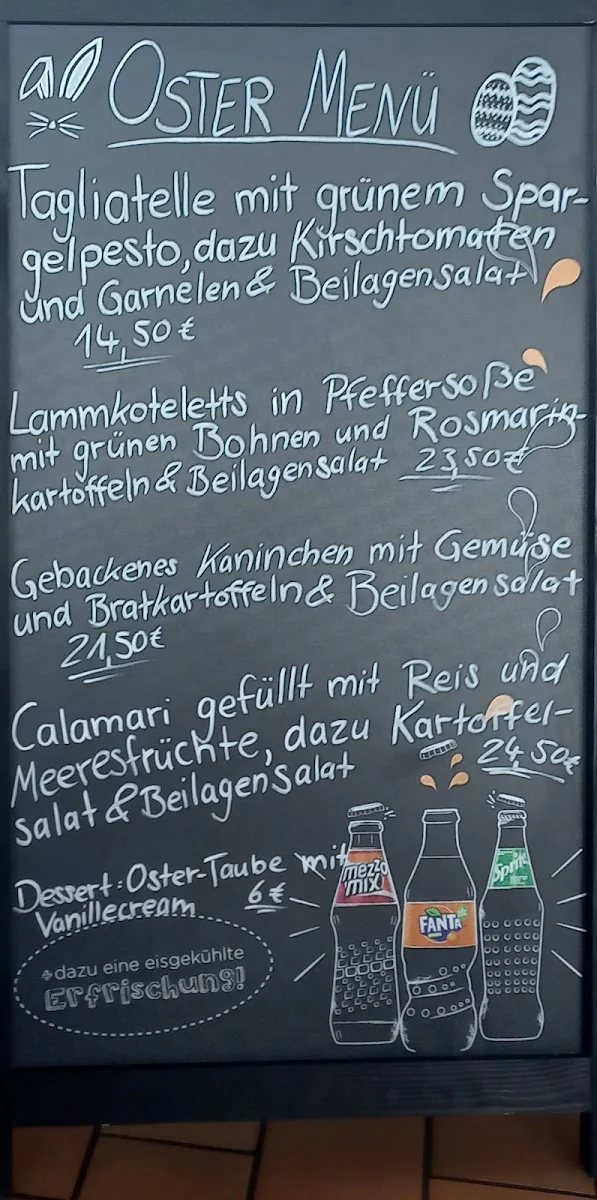 OSTER MENÜ
Tagliatelle mit grünem Spar-
gelpesto, dazu Kirschtomaten
und Garnelen & Beilagensalat
14,50 €
Lammkoteletts in Pfeffersoße
mit grünen Bohnen und Rosmarin-
kartoffeln & Beilagensalat 23,50€
Gebackenes Kaninchen mit Gemüse
und Bratkartoffeln & Beilagensalat
21,50€
Calamari gefüllt mit Reis und
Meeresfrüchte, dazu Kartoffel-
salat & Beilagensalat 24,50€
Dessert: Oster-Taube mit
Vanillecream 6 €
dazu eine eisgekühlte
Erfrischung!
mezzo
mix
FANTA
Sprite